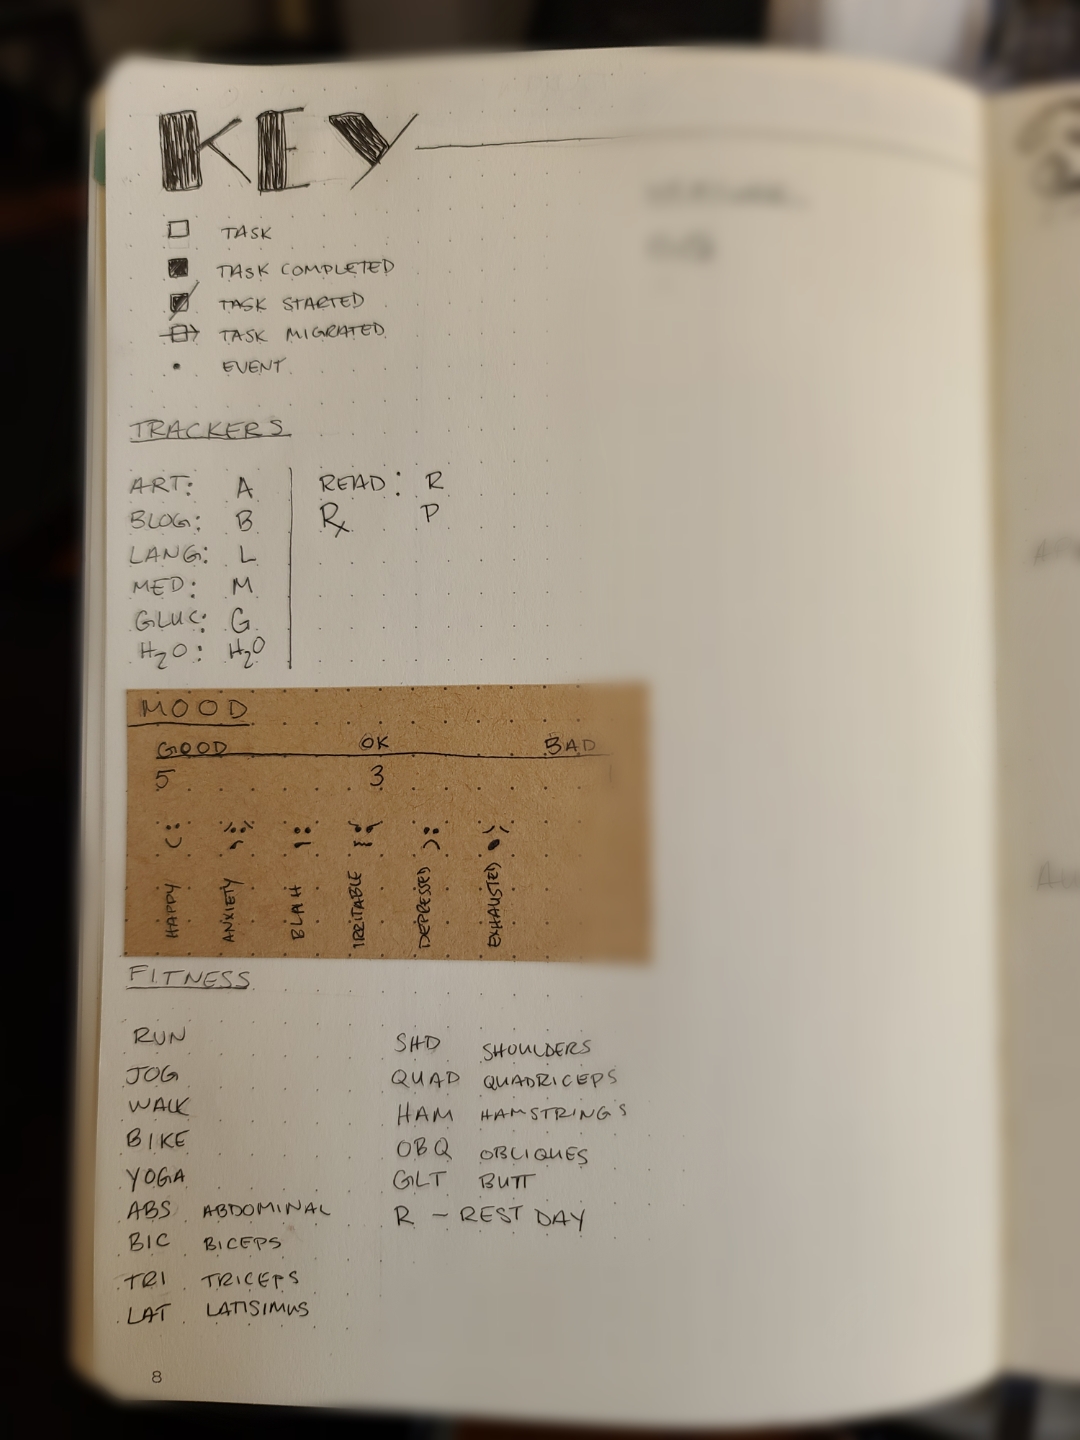 KEY
TASK
TASK COMPLETED
TASK STARTED
TASK MIGRATED
EVENT
TRACKERS
ART: A
BLOG: B
LANG: L
MED: M
GLUC: G
H₂O: H₂O
READ: R
Rx P
MOOD
GOOD OK BAD
5 3
HAPPY
ANXIETY
BLAH
IRRITABLE
DEPRESSED
EXHAUSTED
FITNESS
RUN
JOG
WALK
BIKE
YOGA
ABS ABDOMINAL
BIC BICEPS
TRI TRICEPS
LAT LATISIMUS
SHD SHOULDERS
QUAD QUADRICEPS
HAM HAMSTRINGS
OBQ OBLIQUES
GLT BUTT
R – REST DAY
8